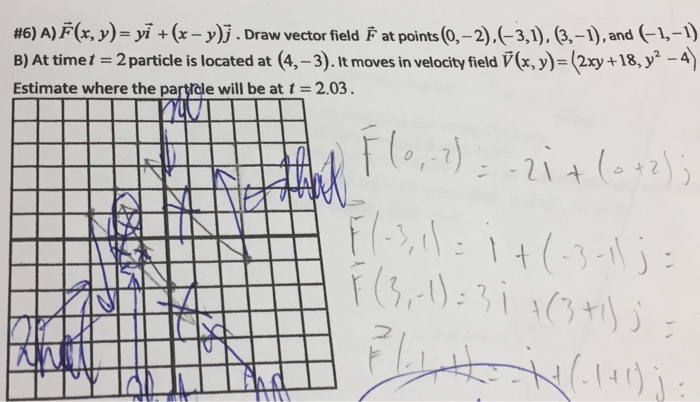 #6) A) F⃗(x, y) = yi⃗ + (x − y)j⃗ . Draw vector field F⃗ at points (0, − 2), (− 3, 1), (3, − 1), and (− 1, −1)
B) At time t = 2 particle is located at (4, − 3). It moves in velocity field V⃗(x, y) = ⟨2xy + 18, y² − 4⟩
Estimate where the particle will be at t = 2.03.
no
that
F⃗(0,-2) = -2i + (0+2)j
F⃗(-3,1) = i + (-3-1)j =
F⃗(3,-1) = 3i + (3+1)j =
F⃗(-1,-1) = -i + (-1+1)j =